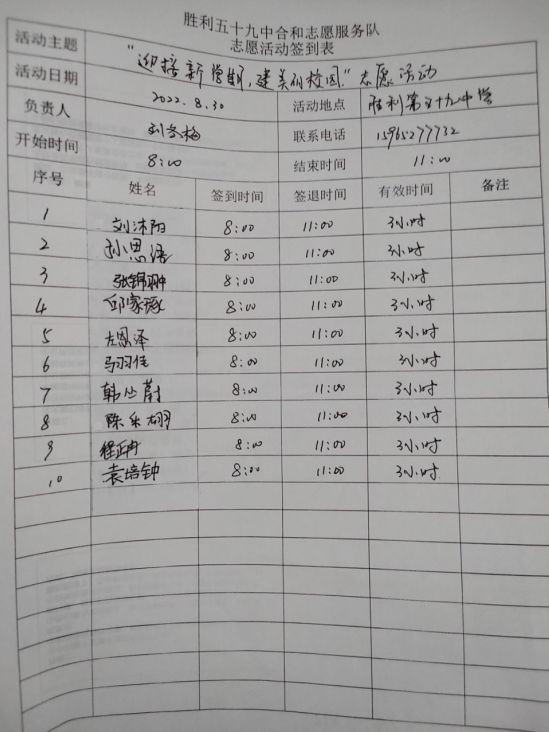 胜利五十九中合和志愿服务队
志愿活动签到表
活动主题 "迎接新学期,建美丽校园."志愿活动
活动日期 2022.8.30 活动地点 胜利第五十九中学
负责人 刘冬梅 联系电话 15965277732
开始时间 8:00 结束时间 11:00
序号 姓名 签到时间 签退时间 有效时间 备注
1 刘沐阳 8:00 11:00 3小时
2 孙思语 8:00 11:00 3小时
3 张锦翀 8:00 11:00 3小时
4 邱家琢 8:00 11:00 3小时
5 左恩泽 8:00 11:00 3小时
6 马羽佳 8:00 11:00 3小时
7 韩丛蔚 8:00 11:00 3小时
8 陈采翊 8:00 11:00 3小时
9 程正冉 8:00 11:00 3小时
10 袁培钟 8:00 11:00 3小时